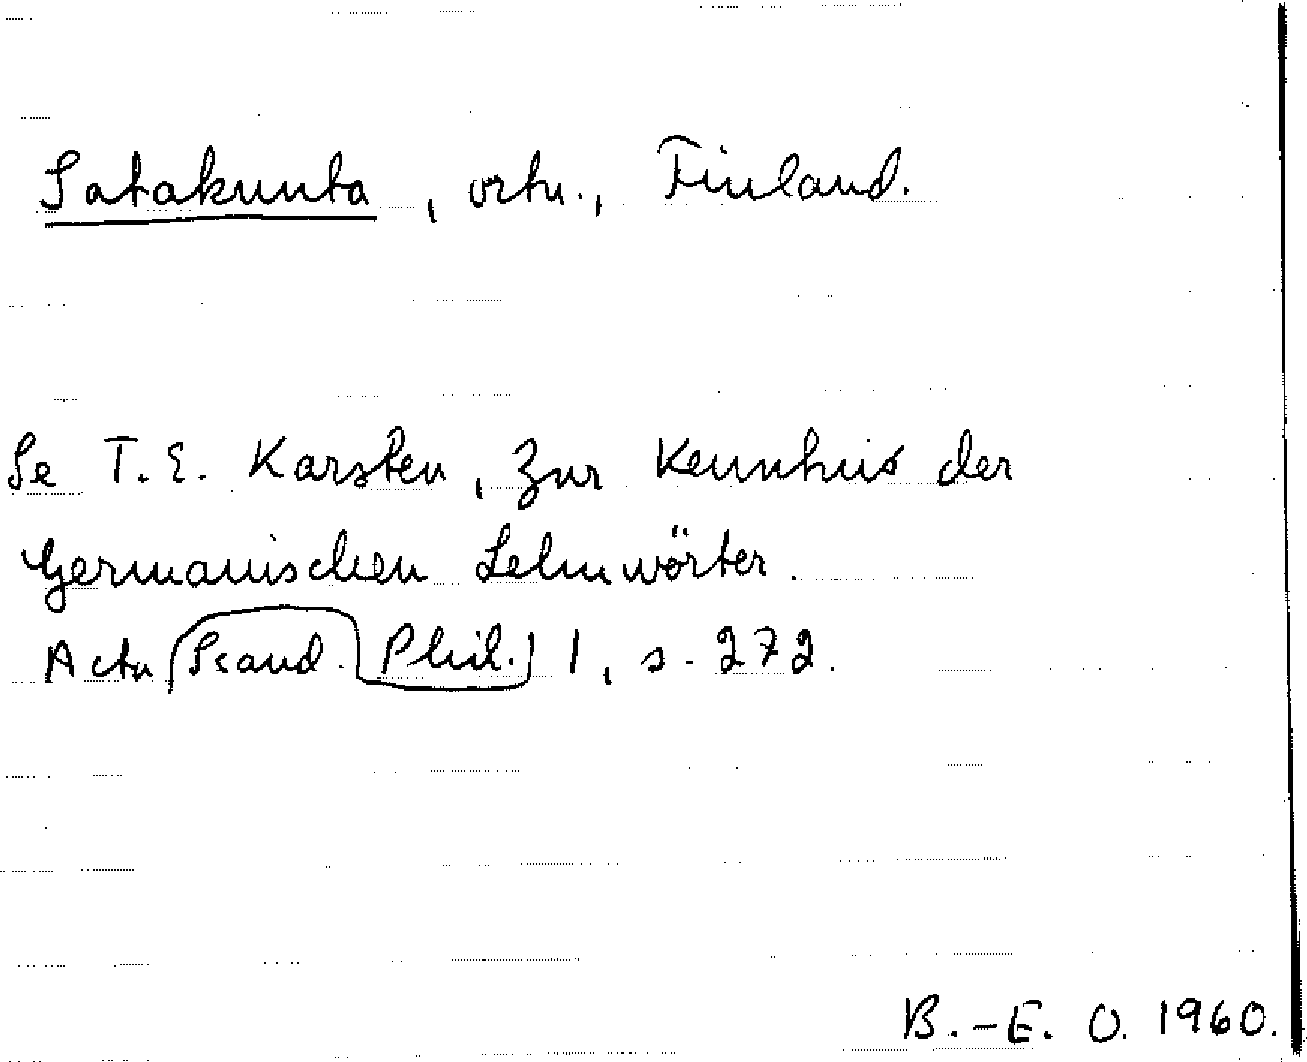 Satakunta, ortn., Finland.
Se T. E. Karsten, Zur Kenntnis der
Germanischen Lehnwörter.
Acta Scand. Phil. 1, s. 272.
B.-E. O. 1960.